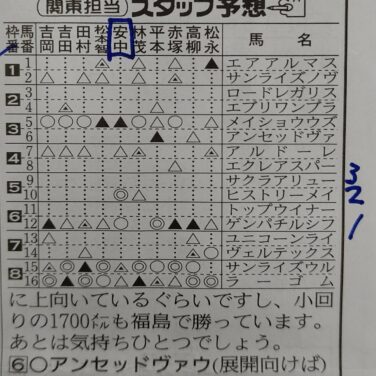 関東担当 スタッフ予想
枠番 馬番 吉岡 吉田 田村 松本智 安中 林茂 平本 赤塚 高柳 松永 馬名
1 1 エアアルマス
2 サンライズノヴ
2 3 ロードレガリス
4 エプリワンブラ
3 5 メイショウウズ
6 アンセッドヴァ
4 7 アルドーレ
8 エクレアスパー
5 9 サクラアリュー
10 ヒストリーメイ
6 11 トップウイナー
12 ゲンパチルシフ
7 13 ユニコーンライ
14 ヴェルテックス
8 15 サンライズウル
16 ラーゴム
3
2
1
に上向いているぐらいですし、小回
りの1700メートルも福島で勝っています。
あとは気持ちひとつでしょう。
6○アンセッドヴァウ(展開向けば)